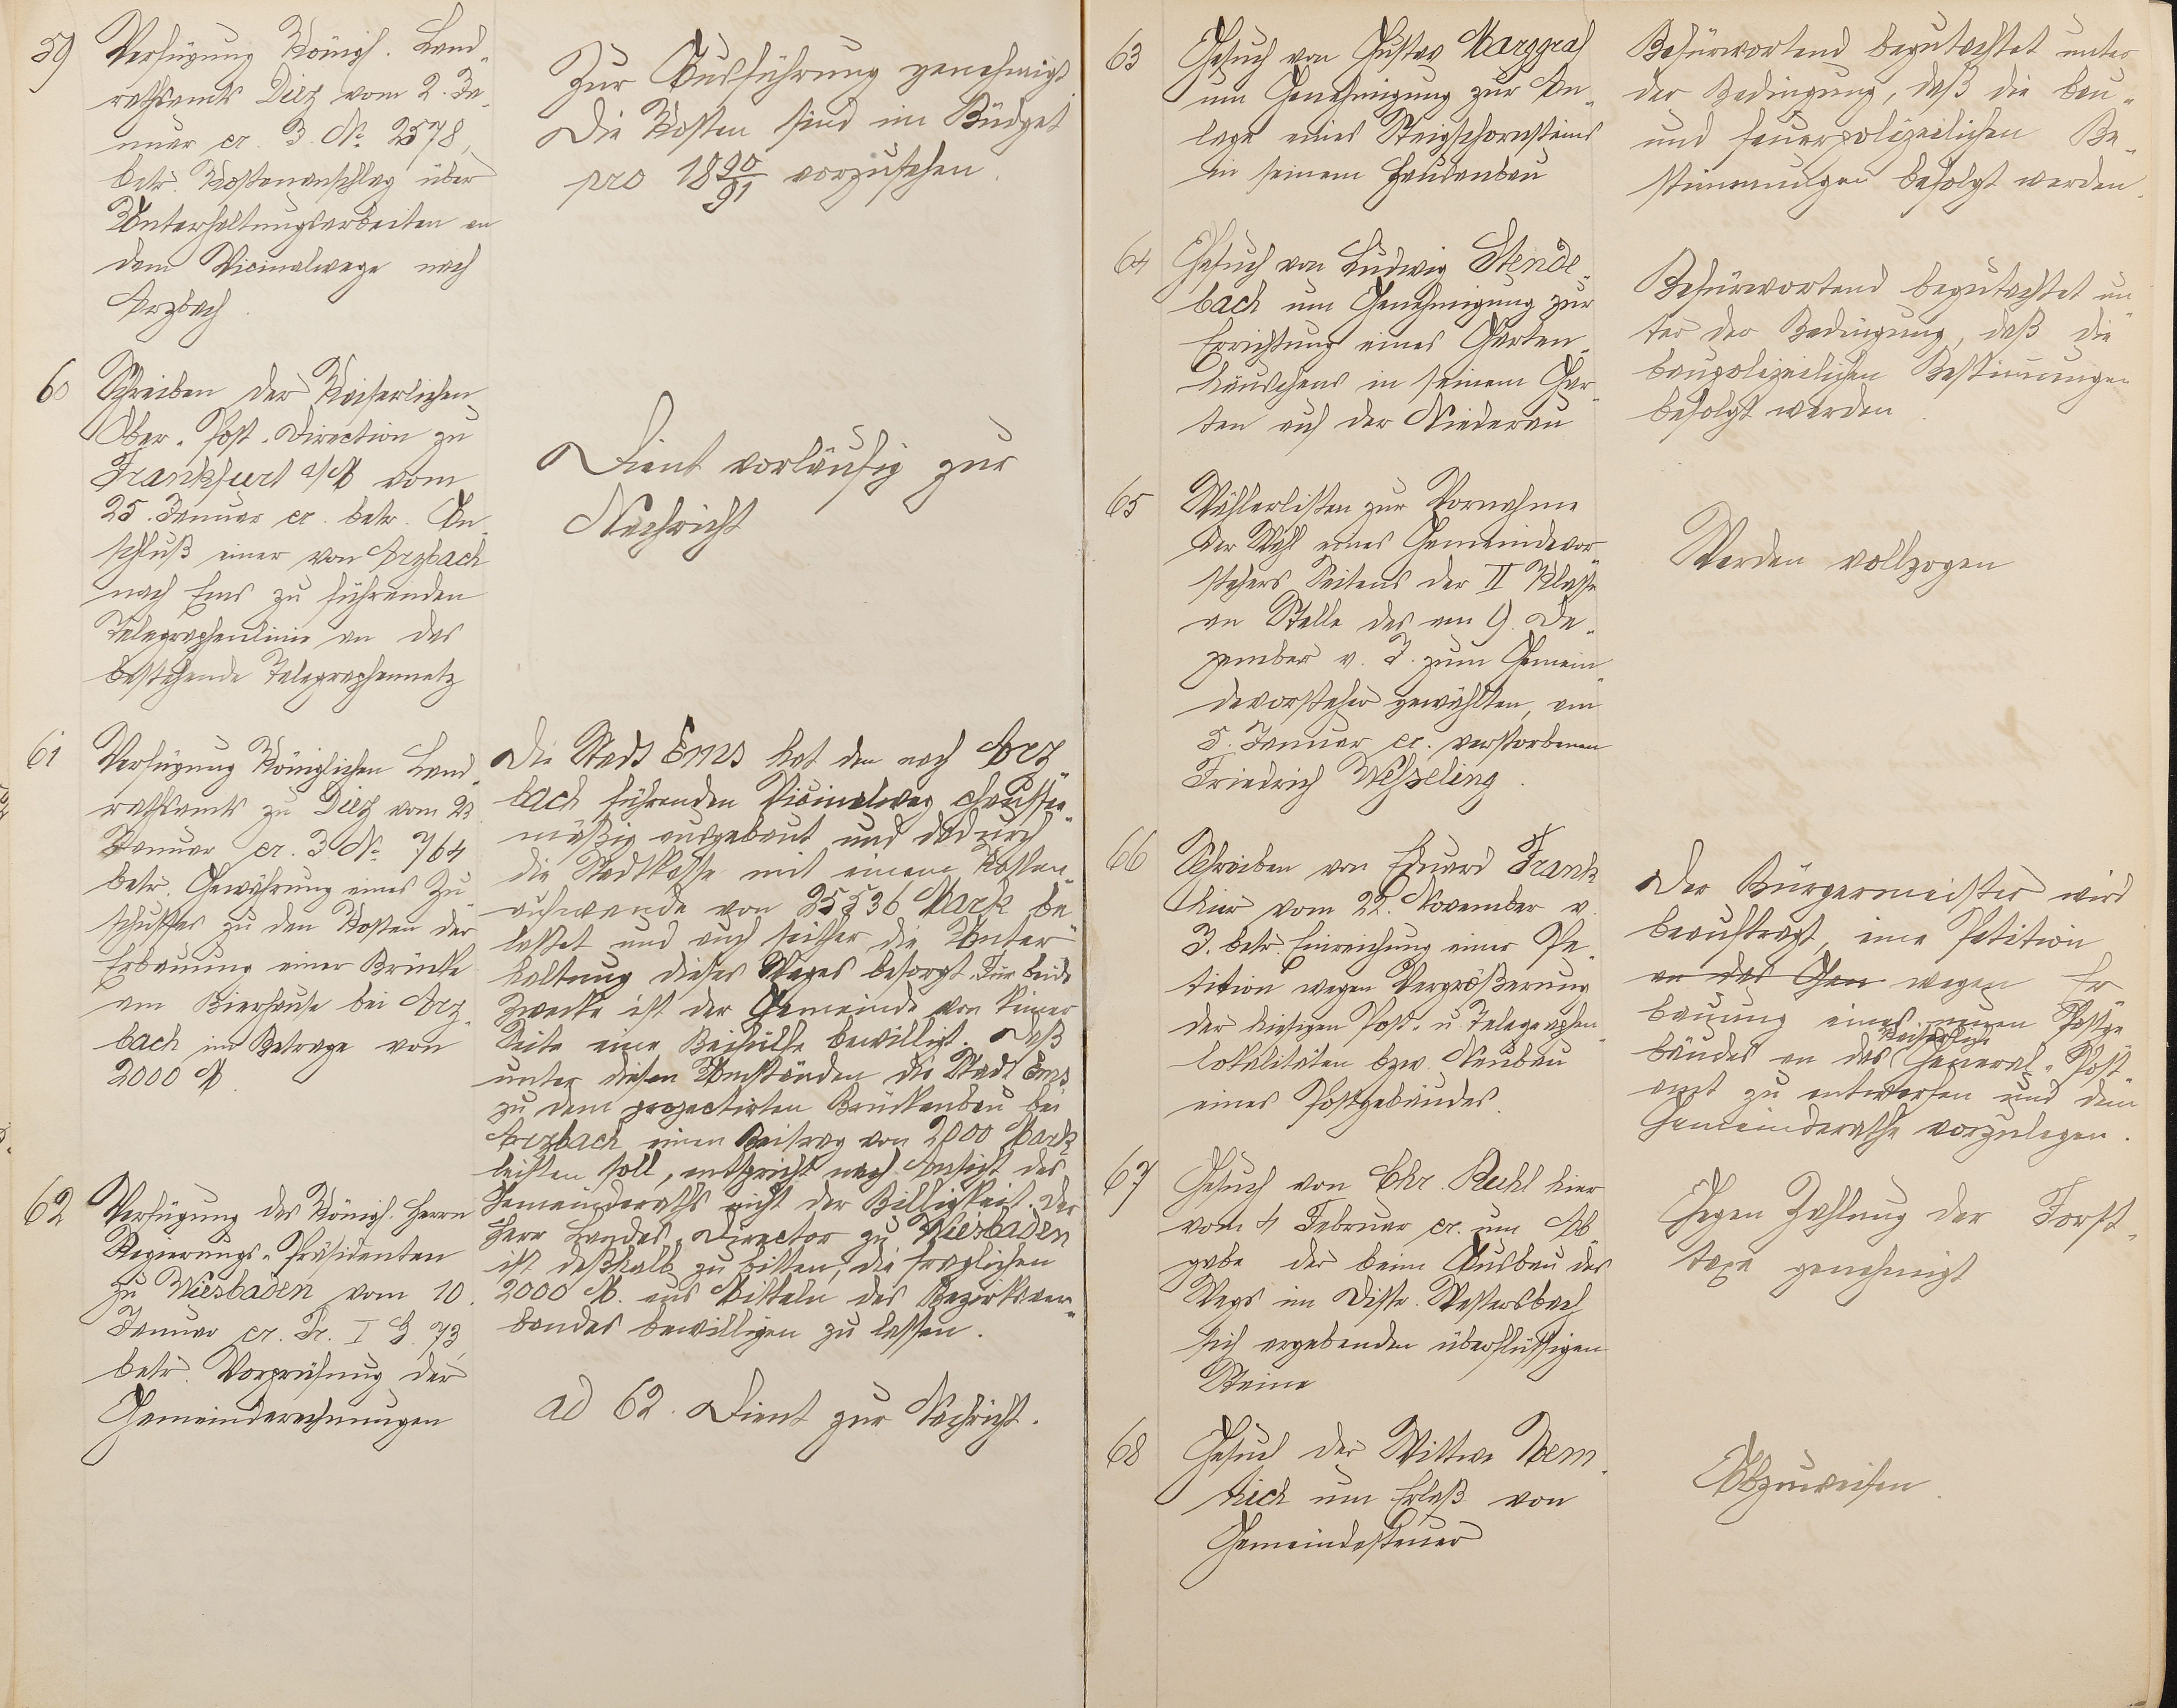 59 Verfügung Königl. Land-
rathsamts Diez vom 2. Ja-
nuar cr. J. No. 2578,
betr. Kostenanschlag über
Unterhaltungsarbeiten an
dem Vicinalwege nach
Arzbach.
Zur Ausführung genehmigt
Die Kosten sind im Büdget
pro 1890/91 vorzusehen.
60 Schreiben der Kaiserlichen
Ober-Post-Direction zu
Frankfurt a/M vom
25. Januar cr. betr. An-
schluß einer von Arzbach
nach Ems zu führenden
Telegraphenlinie an das
bestehende Telegraphennetz
Dient vorläufig zur
Nachricht
61 Verfügung Königlichen Land-
rathsamts zu Diez vom 23
Januar cr. J. No. 764
betr. Gewährung eines Zu-
schusses zu den Kosten der
Erbauung einer Brücke
am Bierhause bei Arz-
bach im Betrage von
2000 M.
Die Stadt Ems hat den nach Arz-
bach führenden Vicinalweg chaussee-
mäßig ausgebaut und dadurch
die Stadtkasse mit einem Kosten-
aufwande von 25536 Mark be-
lastet und auch seither die Unter-
haltung dieses Weges besorgt. Für beide
Zwecke ist der Gemeinde von keiner
Seite eine Beihülfe bewilligt. Daß
unter diesen Umständen die Stadt Ems
zu dem projectirten Brückenbau bei
Arzbach einen Beitrag von 2000 Mark
leisten soll, entspricht nach Ansicht des
Gemeinderaths nicht der Billigkeit. Der
Herr Landes-Director zu Wiesbaden
ist deßhalb zu bitten, die fraglichen
2000 M. aus Mitteln des Bezirksver-
bandes bewilligen zu lassen.
62 Verfügung des Königl. Herrn
Regierungs-Präsidenten
zu Wiesbaden vom 10.
Januar cr. Pr. I G. 73,
betr. Vorprüfung der
Gemeinderechnungen
ad 62. Dient zur Nachricht.
63 Gesuch von Gustav Marggraf
um Genehmigung zur An-
lage eines Steigschornsteins
in seinem Hausanbau
Befürwortend begutachtet unter
der Bedingung, daß die bau-
und feuerpolizeilichen Be-
stimmungen befolgt werden.
64 Gesuch von Ludwig Stende-
bach um Genehmigung zur
Errichtung eines Garten-
häuschens in seinem Gar-
ten auf der Niederau
Befürwortend begutachtet un-
ter der Bedingung, daß die
baupolizeilichen Bestimmungen
befolgt werden.
65 Wählerlisten zur Vornahme
der Wahl eines Gemeindevor-
stehers Seitens der II Klasse
an Stelle des am 9. De-
zember v. J. zum Gemein-
devorsteher gewählten, am
5. Januar cr. verstorbenen
Friedrich Weßeling.
Werden vollzogen
66 Schreiben von Eduard Frank
hier vom 22. November v.
J. betr. Einreichung einer Pe-
tition wegen Vergrößerung
der hiesigen Post- u Telegraphen-
lokalitäten bzw. Neubau
eines Postgebäudes.
Der Bürgermeister wird
beauftragt, eine Petition
an das Gen wegen Er-
bauung eines neuen Postge-
bäudes an das Kaiserliche General-Post-
amt zu entwerfen und dem
Gemeinderathe vorzulegen.
67 Gesuch von Chr. Ruhl hier
vom 4 Februar cr. um Ab-
gabe der beim Ausbau des
Wegs im Distr. Westersbach
sich ergebenden überflüssigen
Steine
Gegen Zahlung der Forst-
taxe genehmigt
68 Gesuch der Wittwe Nem-
nich um Erlaß von
Gemeindesteuer
Abzuweisen.